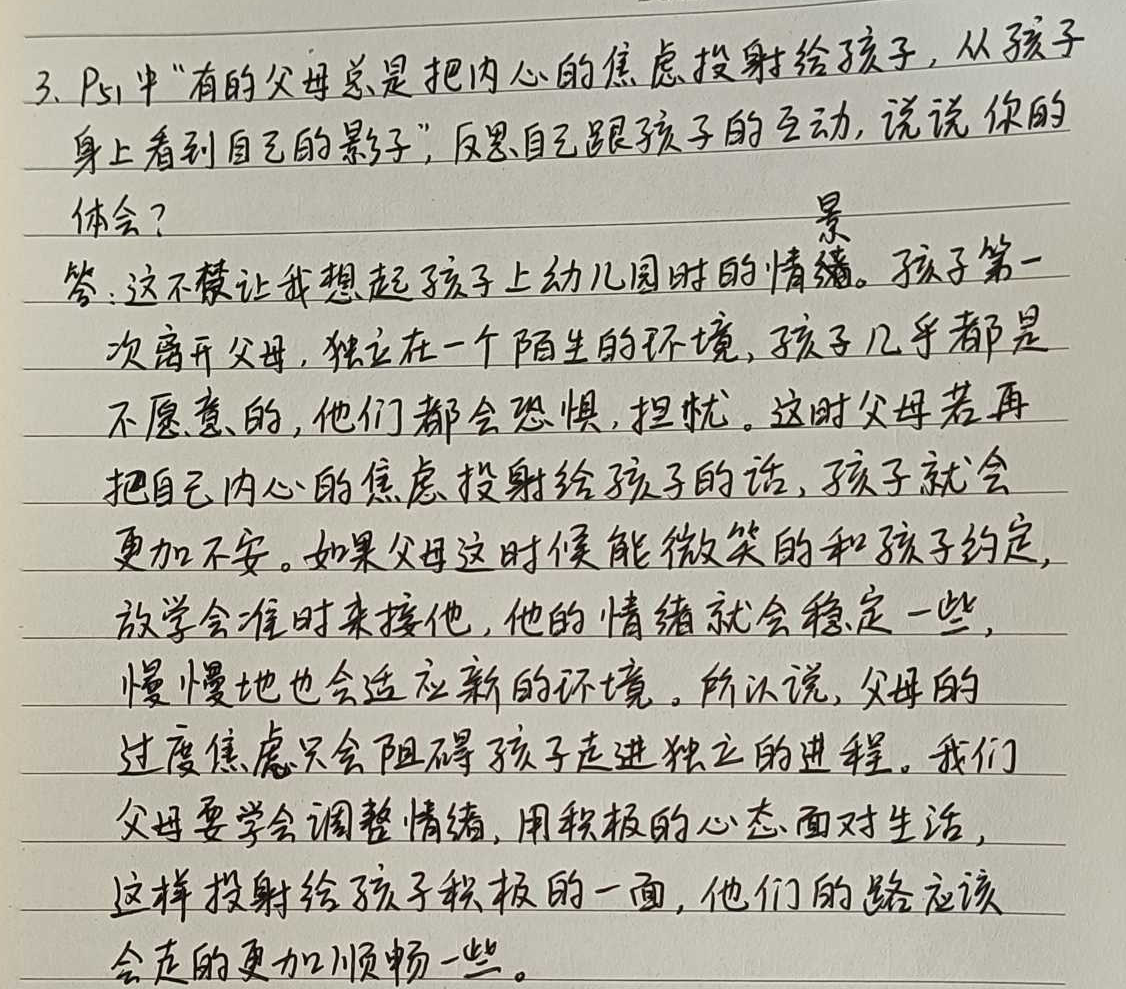 3. P51中“有的父母总是把内心的焦虑投射给孩子,从孩子
身上看到自己的影子”,反思自己跟孩子的互动,说说你的
体会?
景
答:这不禁让我想起孩子上幼儿园时的情绪。孩子第一
次离开父母,独立在一个陌生的环境,孩子几乎都是
不愿意的,他们都会恐惧,担忧。这时父母若再
把自己内心的焦虑投射给孩子的话,孩子就会
更加不安。如果父母这时候能微笑的和孩子约定,
放学会准时来接他,他的情绪就会稳定一些,
慢慢地也会适应新的环境。所以说,父母的
过度焦虑只会阻碍孩子走进独立的进程。我们
父母要学会调整情绪,用积极的心态面对生活,
这样投射给孩子积极的一面,他们的路应该
会走的更加顺畅一些。